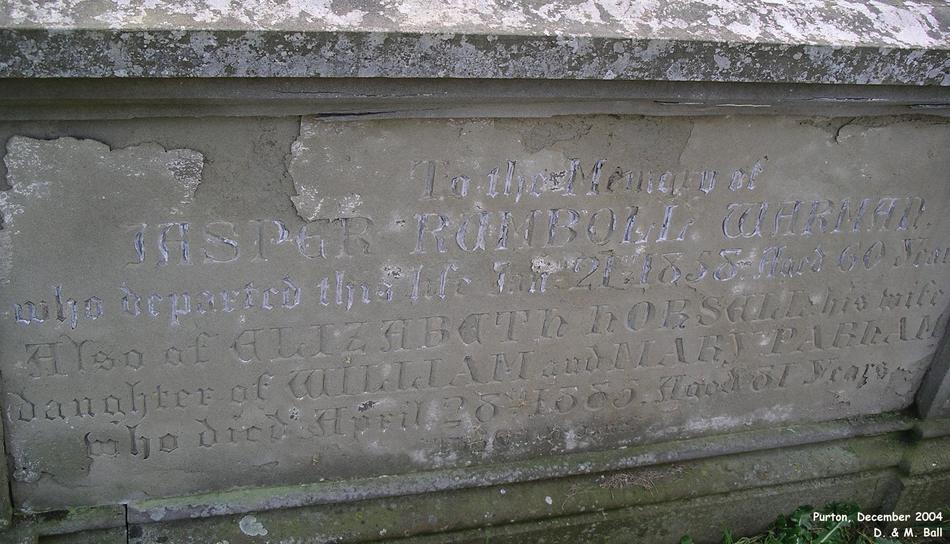 To the Memory of
JASPER RUMBOLL WARMAN,
who departed this life Jan 21 1858 Aged 60 Years
Also of ELIZABETH HORSELL his wife
daughter of WILLIAM and MARY PARHAM
who died April 28 Aged 81 Years
Purton, December 2004
D. & M. Ball